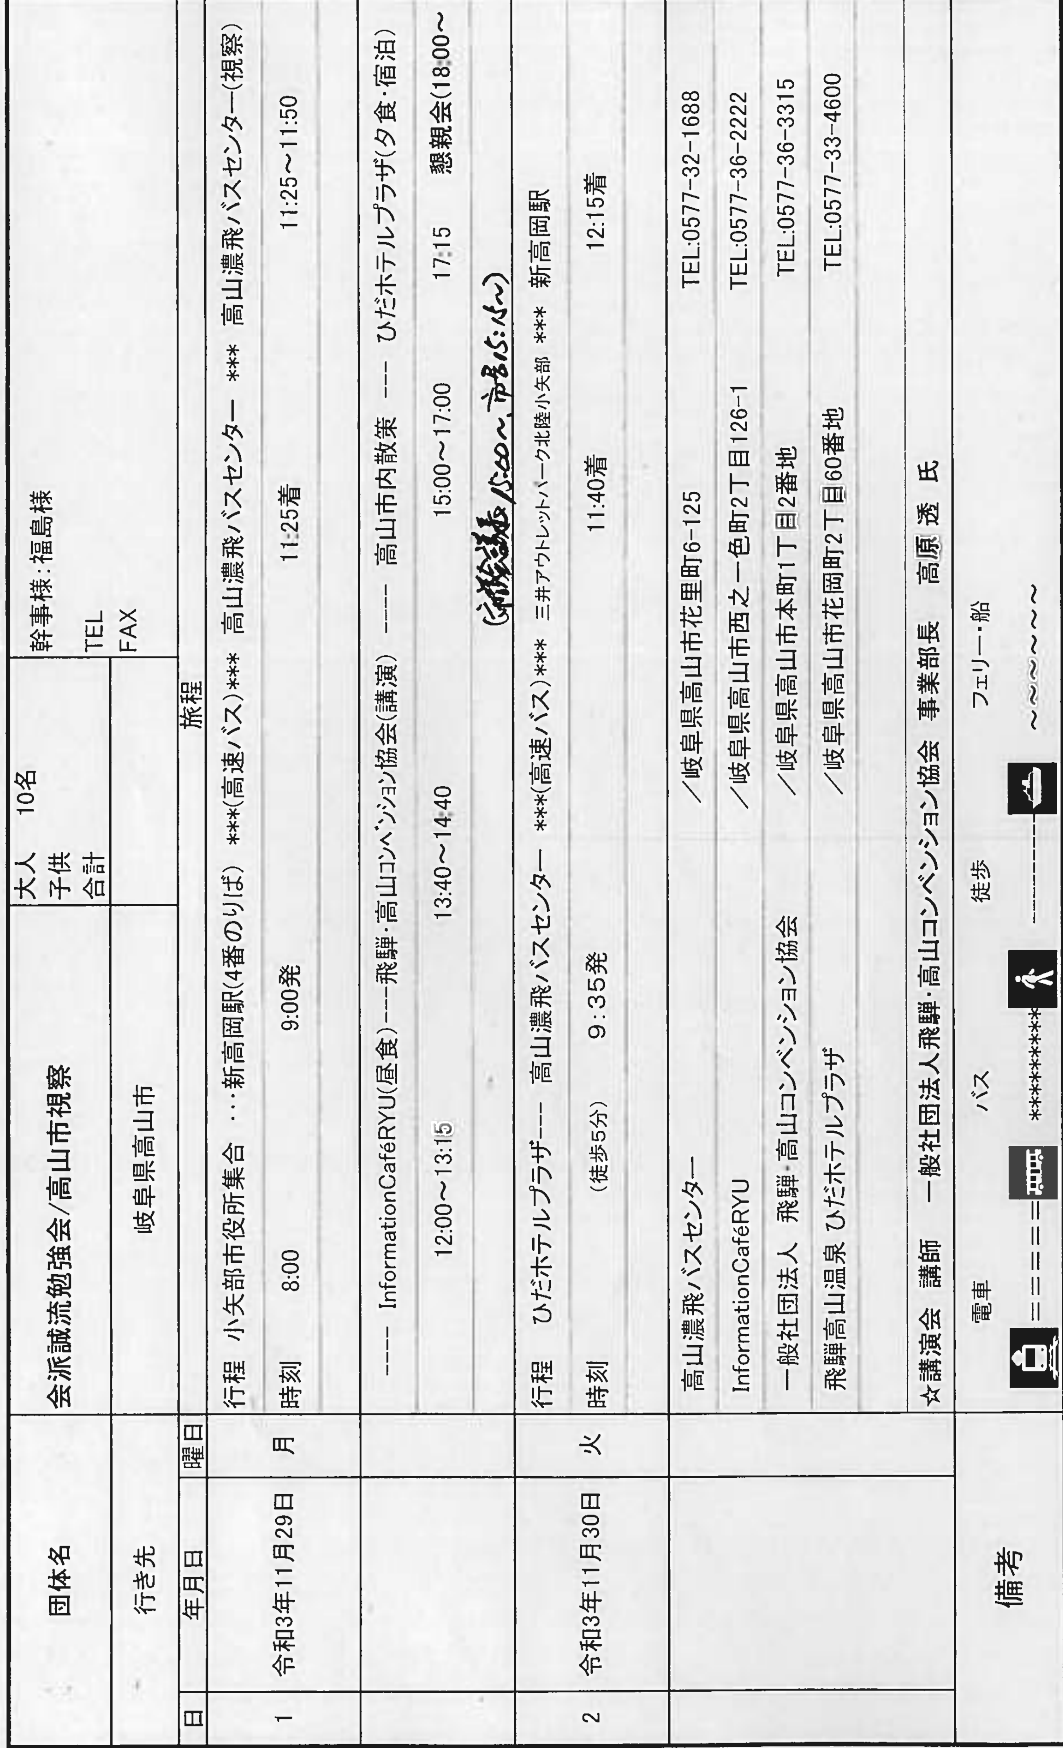 団体名 会派誠流勉強会/高山市視察 大人 10名 幹事様:福島様
子供
合計
TEL
FAX
行き先 岐阜県高山市
日 年月日 曜日 旅程
1 令和3年11月29日 月 行程 小矢部市役所集合 ・・・新高岡駅(4番のりば) ***(高速バス)*** 高山濃飛バスセンター *** 高山濃飛バスセンター(視察)
時刻 8:00 9:00発 11:25着 11:25～11:50
---- InformationCaféRYU(昼食)---飛騨・高山コンベンション協会(講演) ---- 高山市内散策 --- ひだホテルプラザ(夕食・宿泊)
12:00～13:15 13:40～14:40 15:00～17:00 17:15 懇親会(18:00～
15:00～、 15:15～)
2 令和3年11月30日 火 行程 ひだホテルプラザ--- 高山濃飛バスセンター ***(高速バス)*** 三井アウトレットパーク北陸小矢部 *** 新高岡駅
時刻 (徒歩5分) 9:35発 11:40着 12:15着
高山濃飛バスセンター /岐阜県高山市花里町6-125 TEL:0577-32-1688
InformationCaféRYU /岐阜県高山市西之一色町2丁目126-1 TEL:0577-36-2222
一般社団法人 飛騨・高山コンベンション協会 /岐阜県高山市本町1丁目2番地 TEL:0577-36-3315
飛騨高山温泉 ひだホテルプラザ /岐阜県高山市花岡町2丁目60番地 TEL:0577-33-4600
☆講演会 講師 一般社団法人飛騨・高山コンベンション協会 事業部長 高原 透 氏
備考 電車 バス 徒歩 フェリー・船
====== ********* --------- ～～～～～～